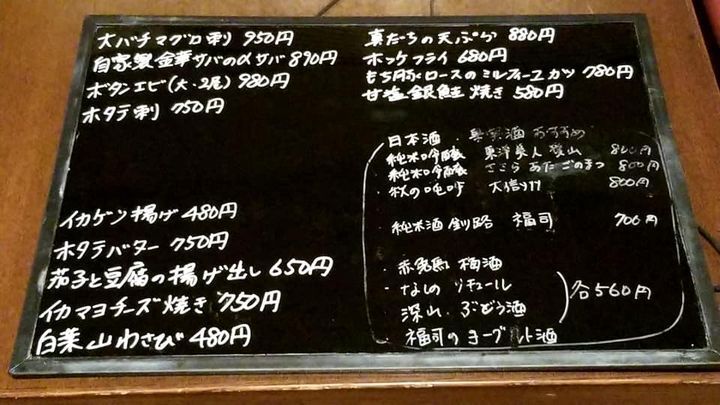 大バチマグロ刺 950円
自家製金華サバの〆サバ 890円
ボタンエビ(大・2尾) 980円
ホタテ刺 750円
イカゲソ揚げ 480円
ホタテバター 750円
茄子と豆腐の揚げ出し 650円
イカマヨチーズ焼き 750円
白菜山わさび 480円
真だちの天ぷら 880円
ホッケフライ 680円
もち豚ロースのミルフィーユカツ 780円
甘塩銀鮭焼き 580円
日本酒・ おすすめ
純米吟醸 東洋美人 800円
純米吟醸 ささら あたごのまつ 800円
・秋の 大信州 800円
・純米酒 釧路 福司 700円
・赤兎馬 梅酒
・なしのリキュール
深山 ぶどう酒
福司のヨーグルト酒
各560円